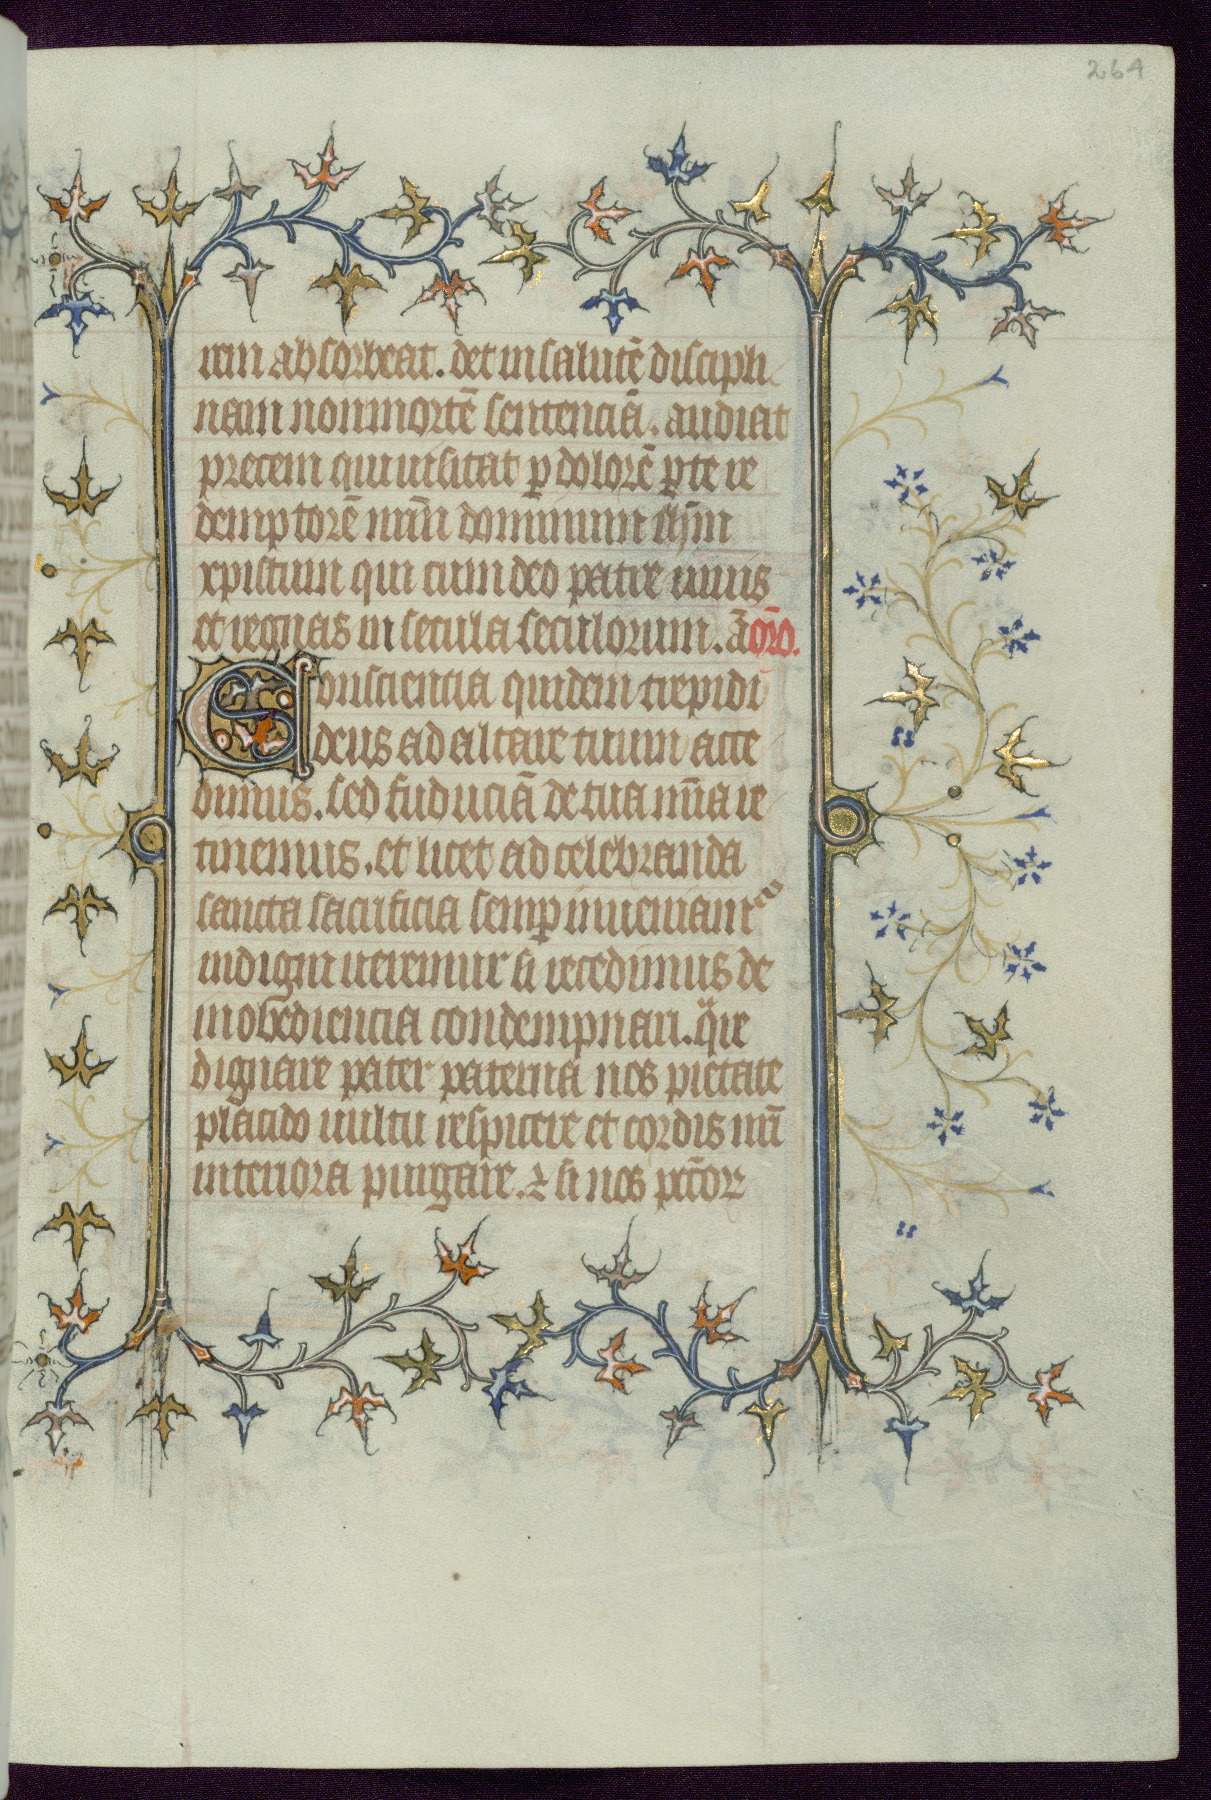 264
rem absorbeat. det in salutē discipli
nam non mortē sentenciā. audiat
precem qui uisitat p dolorē p te re
demptorē nr̄m dominum ih̄m
xpistum qui cum deo patre uiuis
et regnas in secula seculorum. ā or̄o.
Consciencia quidem trepidi
deus ad altare tuum acce
dimus. sed fiduciā de tua mīa re
tinemus. et licet ad celebranda
sancta sacrificia semp inueniamr
indigni ueremur si recedimus de
inobediencia condempnari. q̄re
dignare pater paterna nos pietate
placido uultu respicere et cordis nr̄i
interiora purgare. ⁊ si nos pctōr